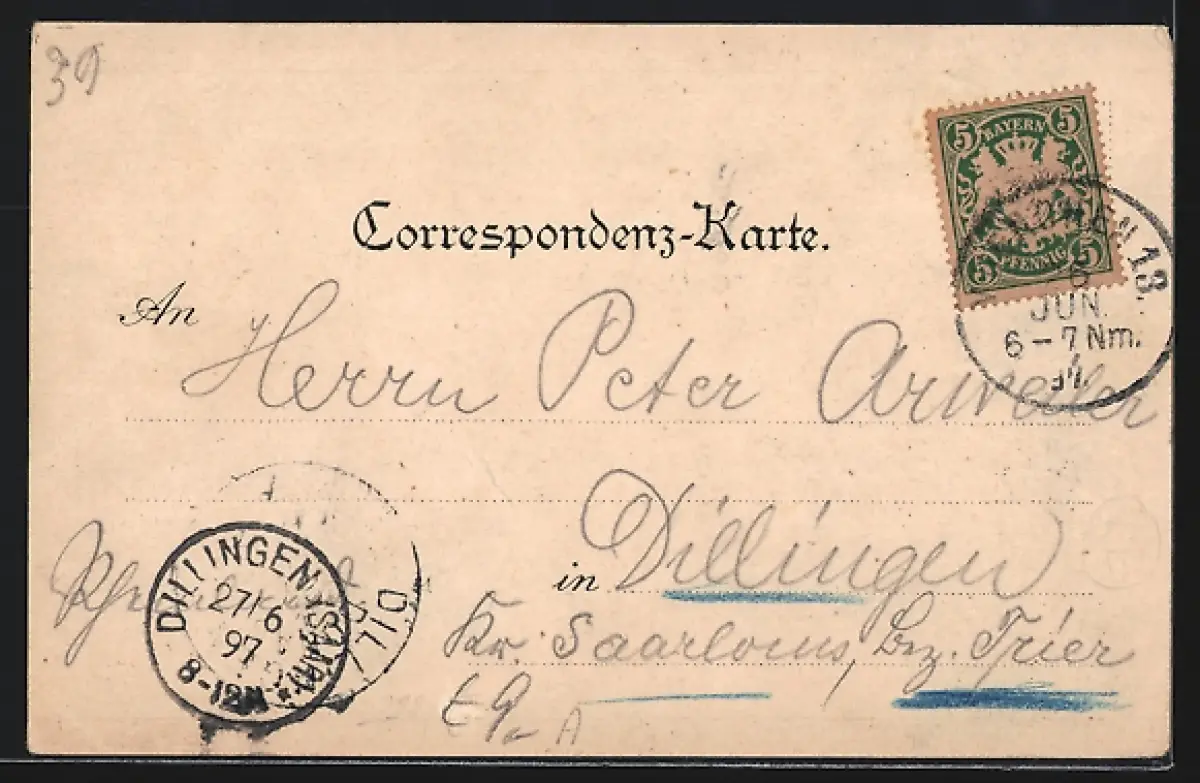 39
BAYERN
5 5
5 5
PFENNIG
13.
JUN.
6-7 Nm.
Correspondenz-Karte.
An
Herrn Peter Arweiler
in Dillingen
Kr. Saarlouis, Bez. Trier
DILLINGEN (SAAR)
27/6
97
8-12N
DILL